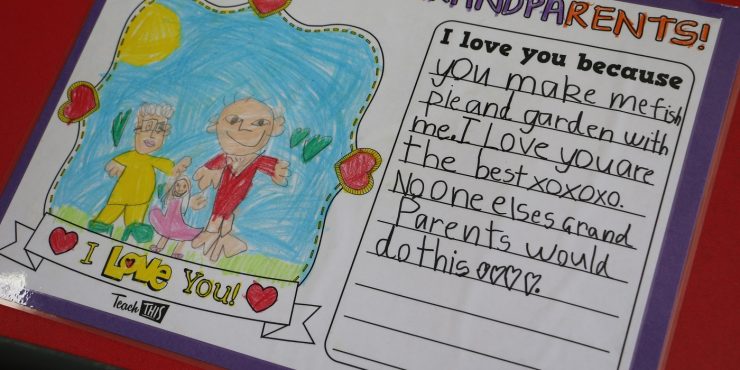 GRANDPARENTS!
I love you because
you make me fish
pie and garden with
me. I Love you are
the best xoxoxo.
No one elses Grand
Parents would
do this
I Love You!
Teach THIS